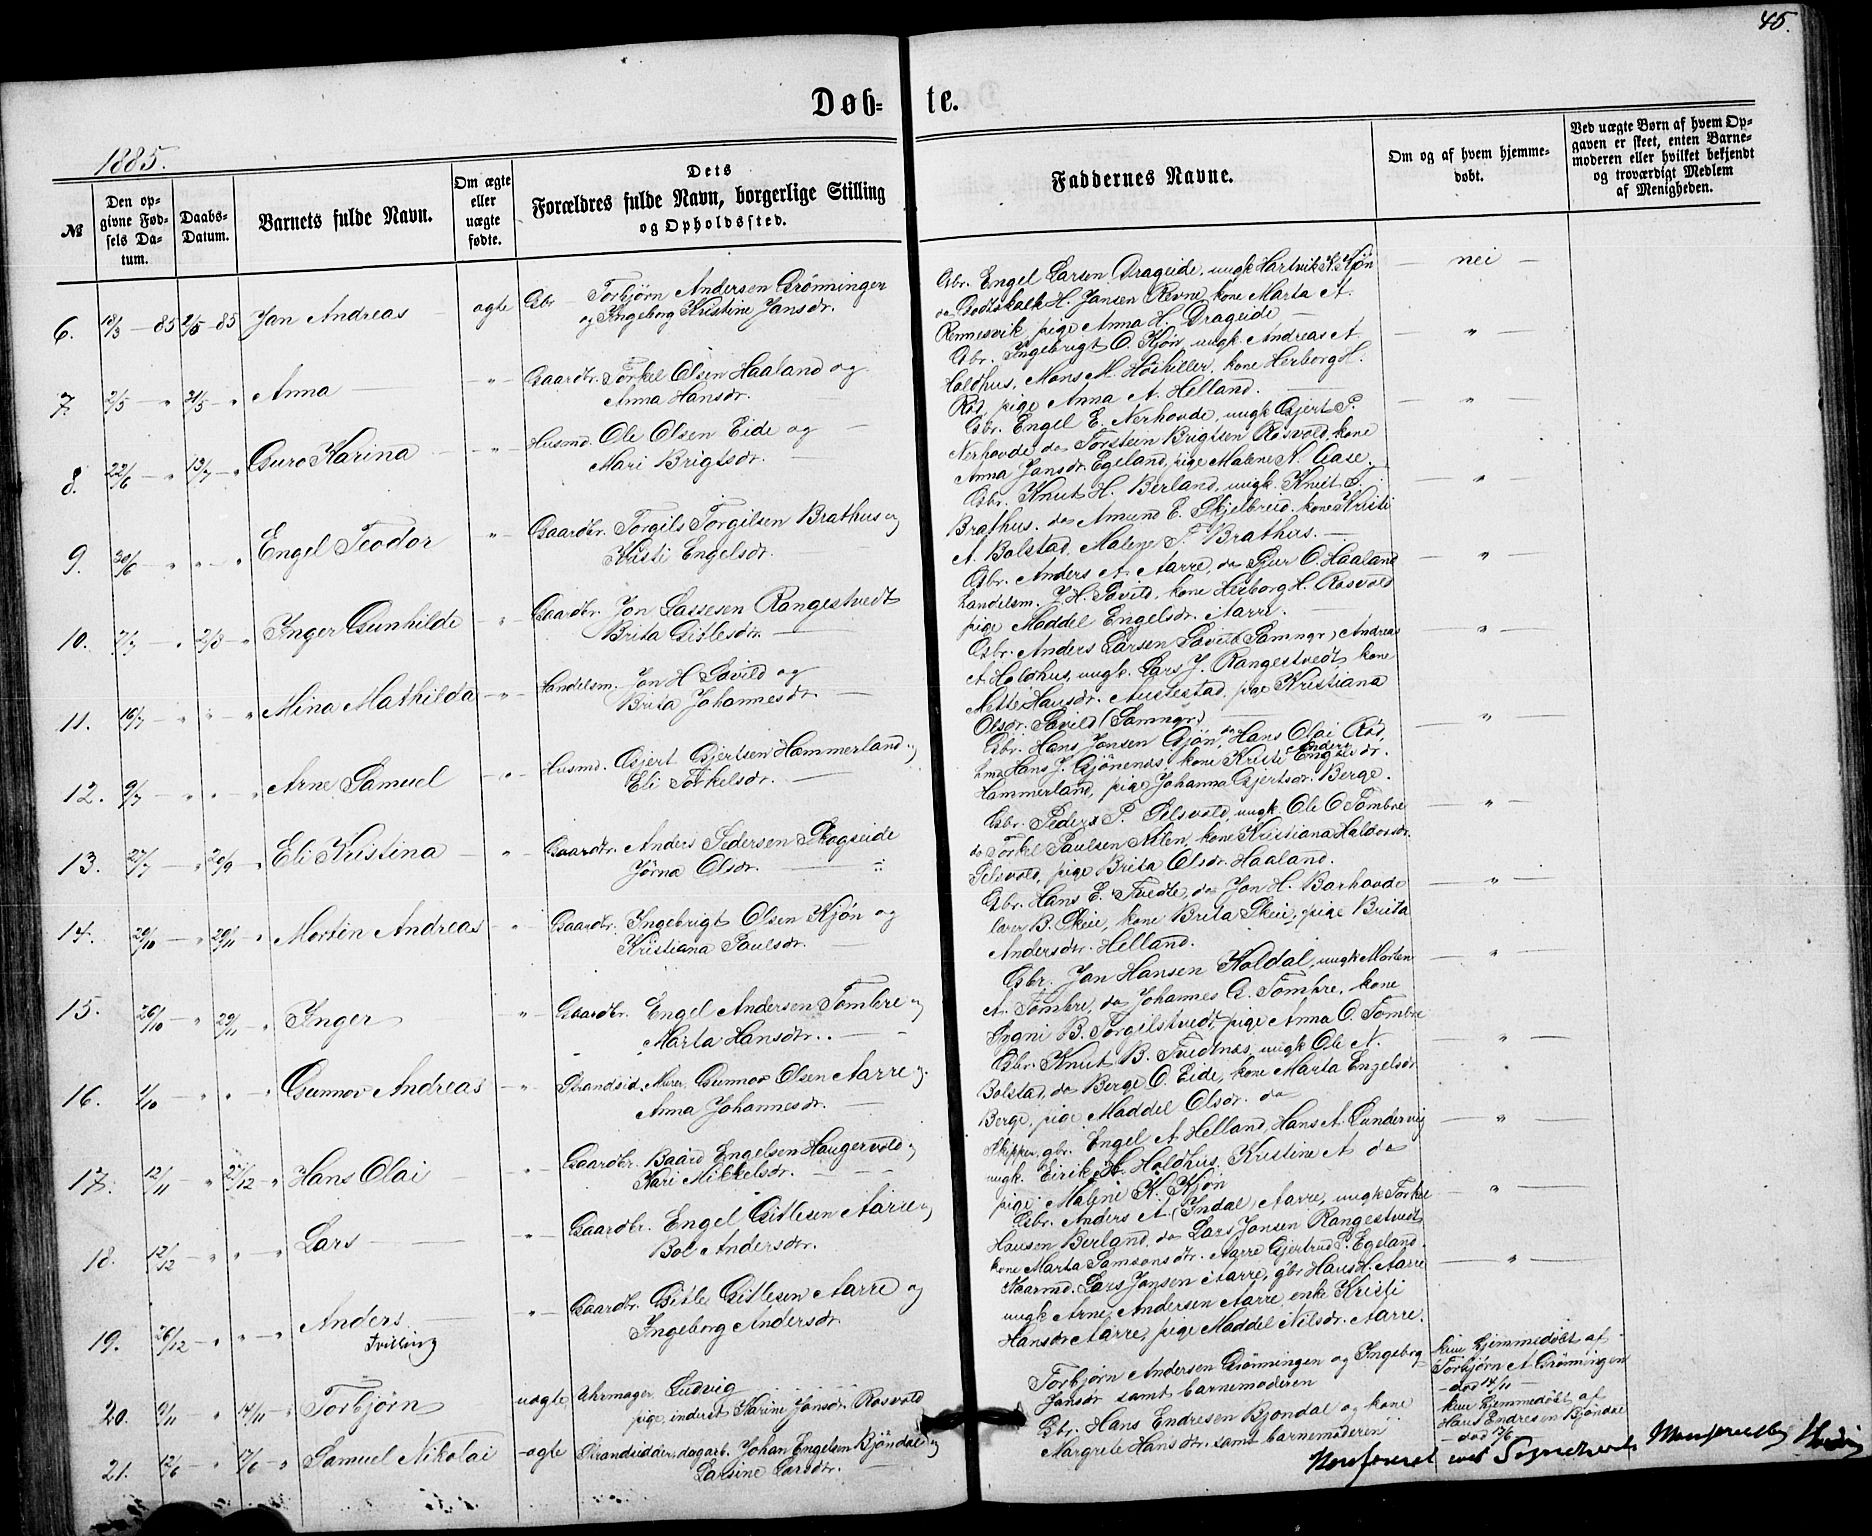 45.
Døb-te.
1885.
№
Den opgivne Fødsels Datum.
Daabs-Datum.
Barnets fulde Navn.
Om ægte eller uægte fødte.
Dets Forældres fulde Navn, borgerlige Stilling og Opholdssted.
Faddernes Navne.
Om og af hvem hjemmedøbt.
Ved uægte Børn af hvem Opgaven er skeet, enten Barnemoderen eller hvilket bekjendt og troværdigt Medlem af Menigheden.
6. 18/3 - 85 2/5 - 85 Jan Andreas - ægte Gbr Torbjørn Andersen Grønningen
og Ingeborg Kristine Jansdr.
Gbr. Engel Larsen Drageide, ungk. Hartvik K. Kjøn - nei -
do Godtskalk H. Jansen Revne, kone Marta A.
Rennesvik, pige Anna H. Drageide
7. 2/5 - " 21/5 - " Anna - " - Gaardbr. Torkel Olsen Haaland og
Anna Hansdr.
Gbr. Ingebrigt O. Kjøn, ungk. Andreas A - " -
Holdhus, Mons M. Høihiller, kone Herborg H.
Rød, pige Anna A. Helland.
8. 22/6 - " 13/7 - " Guro Karina - " - Husmd. Ole Olsen Eide og
Mari Brigtsdr.
Gbr. Engel E. Nerhovde, ungk. Gjert P. - " -
Nerhovde, do Torstein Brigtsen Røsvold, kone
Anna Jansdr. Egeland, pige Malene N. Aase.
9. 30/6 - " " - " Engel Teodor " - Gaardbr. Torgils Torgilsen Brathus og
Kristi Engelsdr.
Gbr. Knut H. Berland, ungk. Knut T. - " -
Brathus. do Amund E. Skjelbreid. kone Kristi
A. Bolstad, Malene T. Brathus.
10. 7/7 " 2/8 - " Inger Gunhilde - " - Gaardbr. Jon Lassesen Rangestvedt
Brita Gitlesdr.
Gbr. Anders A. Aarre, do Sjur O. Haaland - " -
Handelsm. J. H. Savild, kone Herborg H. Røsvold
pige Maddel Engelsdr. Aarre.
11. 16/7 - " " - " Mina Mathilda - " - Handelsm. Jon H Savild og
Brita Johannesdr.
Gbr. Anders Larsen Savild (Samngr) Andreas - " -
A. Holdhus, ungk. Lars J. Rangestvedt, kone
Mette Hansdr. Austestad, pige Kristiana
Olsdr. Savild (Samngr)
12. 9/7 - " - " Arne Samuel - " - Husmd. Gjert Gjertsen Hammerland og
Eli Torkelsdr.
Gbr. Hans Jansen Gjøn, do Hans Olai Rød, - " -
hmd Hans J. Gjønenes, kone Kristi Endresdr.
Hammerland, pige Johanna Gjertsdr. Berge.
13. 27/7 - " 20/9 " Eli Kristina - " - Gaardbr. Anders Pedersen Skogseide
Jørna Olsdr.
Gbr. Peder P. Selsvold, ungk. Ole O Tombre - " -
do Torkel Paulsen Nilen, kone Kristiana Haldorsdr.
Selsvold, pige Brita Olsdr. Haaland.
14. 20/10 - " 20/11 " Morten Andreas - " - Gaardbr. Ingebrigt Olsen Kjøn og
Kristiana Paulsdr.
Gbr. Hans E. Tvedte, do Jon H. Barhovde - " -
lærer B. Skeie, kone Brita Skeie, pige Brita
Andersdtr. Helland.
15. 26/10 - " 29/11 " Inger " - Gaardbr. Engel Andersen Tombre og
Marta Hansdr.
Gbr. Jon Hansen Koldal, ungk. Morten - " -
A. Tombre, do Johannes G. Tombre, kone
Sygni B. Torgilstvedt, pige Anna O. Tombre
16. 1/10 - " " - " Gunnov Andreas - " - Strandsid. Murer, Gunnov Olsen Aarre og
Anna Johannesdr.
Gbr. Knut B. Tvedtnes, ungk. Ole N. - " -
Bolstad, do Berge O. Eide, kone Marta Engelsdr
Berge, pige Maddel Olsdr. do
17. 12/11 - " 27/12 - " Hans Olai " - Gaardbr. Baard Engelsen Haugervold og
Kari Mikkelsdr.
Skipper, gbr. Engel A Helland, Hans A. Lundervig - " -
ungk. Eirik H. Holdhus, Kristine A do
pige Malene K. Kjøn
18. 12/12 - " " - " Lars - " - Gaardbr. Engel Gitlesen Aarre og
Bol Andersdr.
Gbr. Anders A. (Indal) Aarre, ungk Torkel - " -
Hansen Berland, do Lars Jansen Rangestvedt
kone Marta Samsonsdr. Aarre Gjertrud P. Egeland.
19. 26/12 - " " - " Anders.
Tvilling - " - Gaardbr. Gitle Gitlesen Aarre og
Ingeborg Andersdr
Kaarmd. Lars Jansen Aarre, gbr Hans H. Aarre - " -
ungk Arne Andersen Aarre, enke Kristi
Hansdr Aarre, pige Maddel Nilsdr. Aarre.
20. 9/11 - " 14/11 - " Torbjørn uægte Uhrmager, Ludvig
pige, inderst Karine Jansdr Røsvold
Torbjørn Andersen Grønningen og Ingeborg
Jansdr samt barnemoderen
kun hjemmedøbt af
Torbjørn A. Grønningen
- død 14/11 -
21. 12/6 - " 17/6 - " Samuel Nikolai - ægte Strandsidder, dagarb. Johan Engelsen Bjøndal og
Larsine Larsdr.
Gbr. Hans Endresen Bjøndal og kone
Margrete Hansdr. samt barnemoderen
kun hjemmedøbt af
Hans Endresen Bjøndal
- død 17/6 -
Konfereret ved